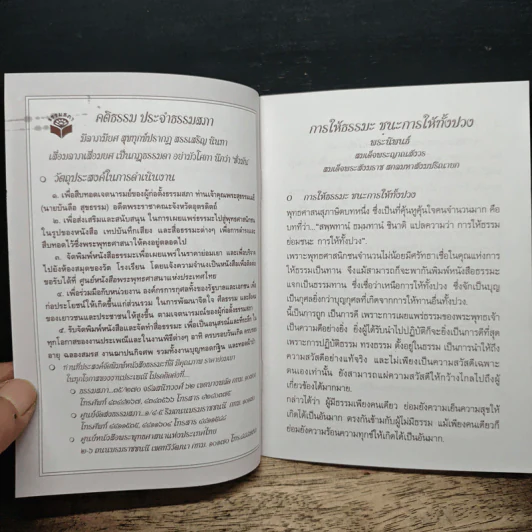 คติธรรม ประจำธรรมสภา
มีลาภมียศ สุขทุกข์ปรากฏ สรรเสริญ นินทา
เสื่อมลาภเสื่อมยศ เป็นกฎธรรมดา อย่ามัวโศกา นึกว่า "ช่างมัน"
วัตถุประสงค์ในการดำเนินงาน
๑. เพื่อสืบทอดเจตนารมณ์ของผู้ก่อตั้งธรรมสภา ท่านเจ้าคุณพระสุทธรมณี
(นายบันลือ สุขธรรม) อดีตพระราชาคณะจังหวัดอุตรดิตถ์
๒. เพื่อส่งเสริมและสนับสนุน ในการเผยแผ่ธรรมะไปสู่พุทธศาสนิกชน
ในรูปของหนังสือ เทปบันทึกเสียง และสื่อธรรมะต่างๆ เพื่อการดำรงและ
สืบทอดไว้ซึ่งพระพุทธศาสนาให้คงอยู่ตลอดไป
๓. จัดพิมพ์หนังสือธรรมะเพื่อเผยแพร่ในราคาย่อมเยา และเพื่อบริจาค
ไปยังห้องสมุดของวัด โรงเรียน โดยแจ้งความจำนงเป็นหนังสือเพื่อติดต่อ
ขอรับได้ที่ ศูนย์หนังสือพระพุทธศาสนาแห่งประเทศไทย
๔. เพื่อร่วมมือกับหน่วยงาน องค์กรการกุศลทั้งของรัฐบาลและเอกชน เพื่อ
ก่อประโยชน์ให้เกิดขึ้นแก่ส่วนรวม ในการพัฒนาจิตใจ ศีลธรรม และสังคม
ของเยาวชนและประชาชนให้สูงขึ้น ตามเจตนารมณ์ของผู้ก่อตั้งธรรมสภา
๕. รับจัดพิมพ์หนังสือและจัดทำสื่อธรรมะ เพื่อเป็นอนุสรณ์และที่ระลึก ใน
ทุกโอกาสของงานประเพณีและในงานพิธีต่างๆ อาทิ ครบรอบวันเกิด ครบรอบ
อายุ ฉลองสมรส งานฌาปนกิจศพ รวมทั้งงานบุญทอดกฐิน และทอดผ้าป่า
ในทุกโอกาสของงานประเพณี โปรดติดต่อที่...
ธรรมสภา
ศูนย์หนังสือพระพุทธศาสนาแห่งประเทศไทย
การให้ธรรมะ ชนะการให้ทั้งปวง
พระนิพนธ์
สมเด็จพระญาณสังวร
สมเด็จพระสังฆราช สกลมหาสังฆปริณายก
การให้ธรรมะ ชนะการให้ทั้งปวง
พุทธศาสนสุภาษิตบทหนึ่ง ซึ่งเป็นที่คุ้นหูคุ้นใจคนจำนวนมาก คือ
บทที่ว่า..."สพฺพทานํ ธมฺมทานํ ชินาติ แปลความว่า การให้ธรรม
ย่อมชนะ การให้ทั้งปวง".
เพราะพุทธศาสนิกชนจำนวนไม่น้อยมีศรัทธาเชื่อในคุณแห่งการ
ให้ธรรมเป็นทาน จึงแม้สามารถก็จะพากันพิมพ์หนังสือธรรมะ
แจกเป็นธรรมทาน ซึ่งเชื่อว่าเหนือการให้ทั้งปวง ซึ่งจักเป็นบุญ
เป็นกุศลยิ่งกว่าบุญกุศลที่เกิดจากการให้ทานอื่นทั้งปวง.
นี้เป็นการถูก เป็นการดี เพราะการเผยแผ่ธรรมของพระพุทธเจ้า
เป็นความดีอย่างยิ่ง ยิ่งผู้ได้รับนำไปปฏิบัติก็จะยิ่งเป็นการดีที่สุด
เพราะการปฏิบัติธรรม ทรงธรรม ตั้งอยู่ในธรรม เป็นการนำให้ถึง
ความสวัสดีอย่างแท้จริง และไม่เพียงเป็นความสวัสดีเฉพาะ
ตนเองเท่านั้น ยังสามารถแผ่ความสวัสดีให้กว้างไกลไปถึงผู้
เกี่ยวข้องได้มากมาย.
กล่าวได้ว่า ผู้มีธรรมเพียงคนเดียว ย่อมยังความเย็นความสุขให้
เกิดได้เป็นอันมาก ตรงกันข้ามกับผู้ไม่มีธรรม แม้เพียงคนเดียวก็
ย่อมยังความร้อนความทุกข์ให้เกิดได้เป็นอันมาก.